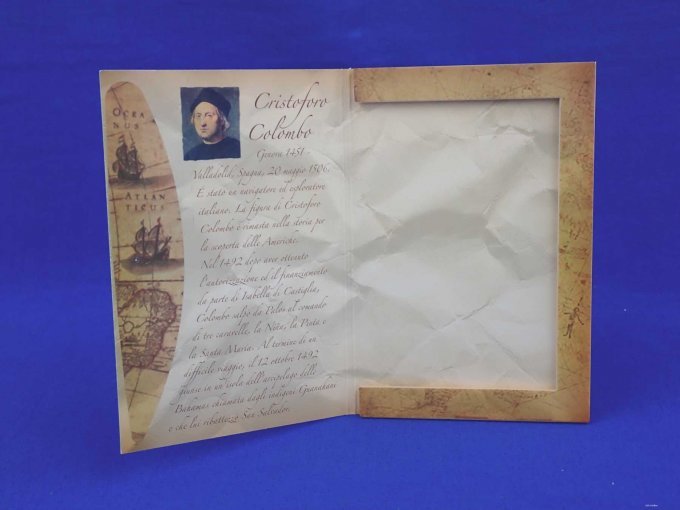 OCEA
NUS
ATLAN
TICUS
Cristoforo
Colombo
Genova 1451
Valladolid, Spagna, 20 maggio 1506.
È stato un navigatore ed esploratore
italiano. La figura di Cristoforo
Colombo è rimasta nella storia per
la scoperta delle Americhe.
Nel 1492 dopo aver ottenuto
l'autorizzazione ed il finanziamento
da parte di Isabella di Castiglia,
Colombo salpò da Palos al comando
di tre caravelle, la Niña, la Pinta e
la Santa Maria. Al termine di un
difficile viaggio, il 12 ottobre 1492
giunse in un'isola dell'arcipelago delle
Bahamas chiamata dagli indigeni Guanahani
e che lui ribattezzò San Salvador.